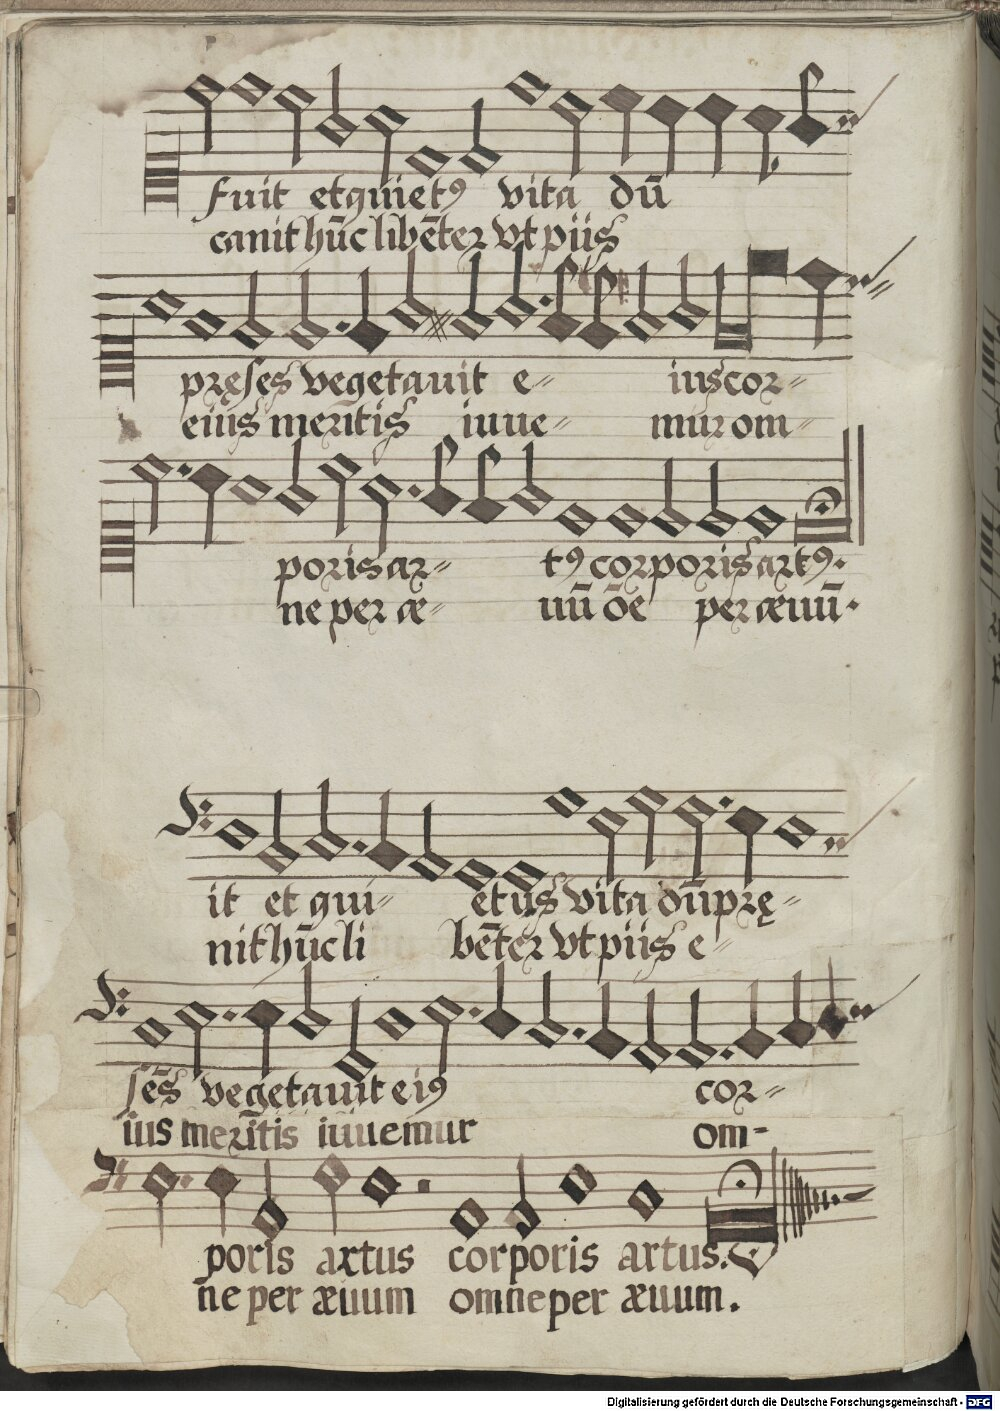 fuit etquietꝰ vita dū
canit hūc libēter vt piis
pręses vegetauit e= iuscor=
eiūs merītis iuue= mur om=
porisar= tꝰ corporisartꝰ.
ne per æ= uū ōe per æuū.
it et qui= etus vita dūprę=
nit hūc li bēter vt piis e=
sēs vegetauit eiꝰ cor=
ius merītis iuuemur om=
poris artus corporis artus.
ne per æuum omneper æuum.
Digitalisierung gefördert durch die Deutsche Forschungsgemeinschaft - DFG